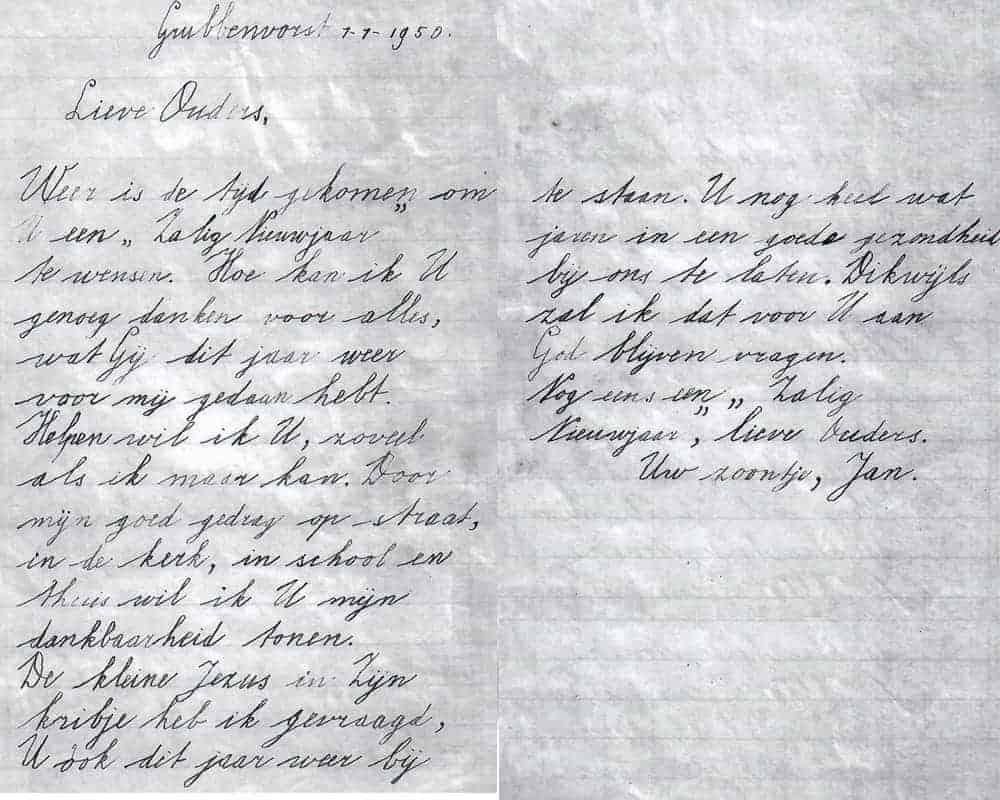 Grubbenvorst 1-1-1950.
Lieve Ouders,
Weer is de tijd gekomen om
U een „ Zalig Nieuwjaar”
te wensen. Hoe kan ik U
genoeg danken voor alles,
wat Gij dit jaar weer
voor mij gedaan hebt.
Helpen wil ik U, zoveel
als ik maar kan. Door
mijn goed gedrag op straat,
in de kerk, in school en
thuis wil ik U mijn
dankbaarheid tonen.
De kleine Jezus in Zijn
kribje heb ik gevraagd,
U óók dit jaar weer bij
te staan. U nog heel wat
jaren in een goede gezondheid
bij ons te laten. Dikwijls
zal ik dat voor U aan
God blijven vragen.
Nog eens een „ Zalig
Nieuwjaar”, lieve Ouders.
Uw zoontje, Jan.